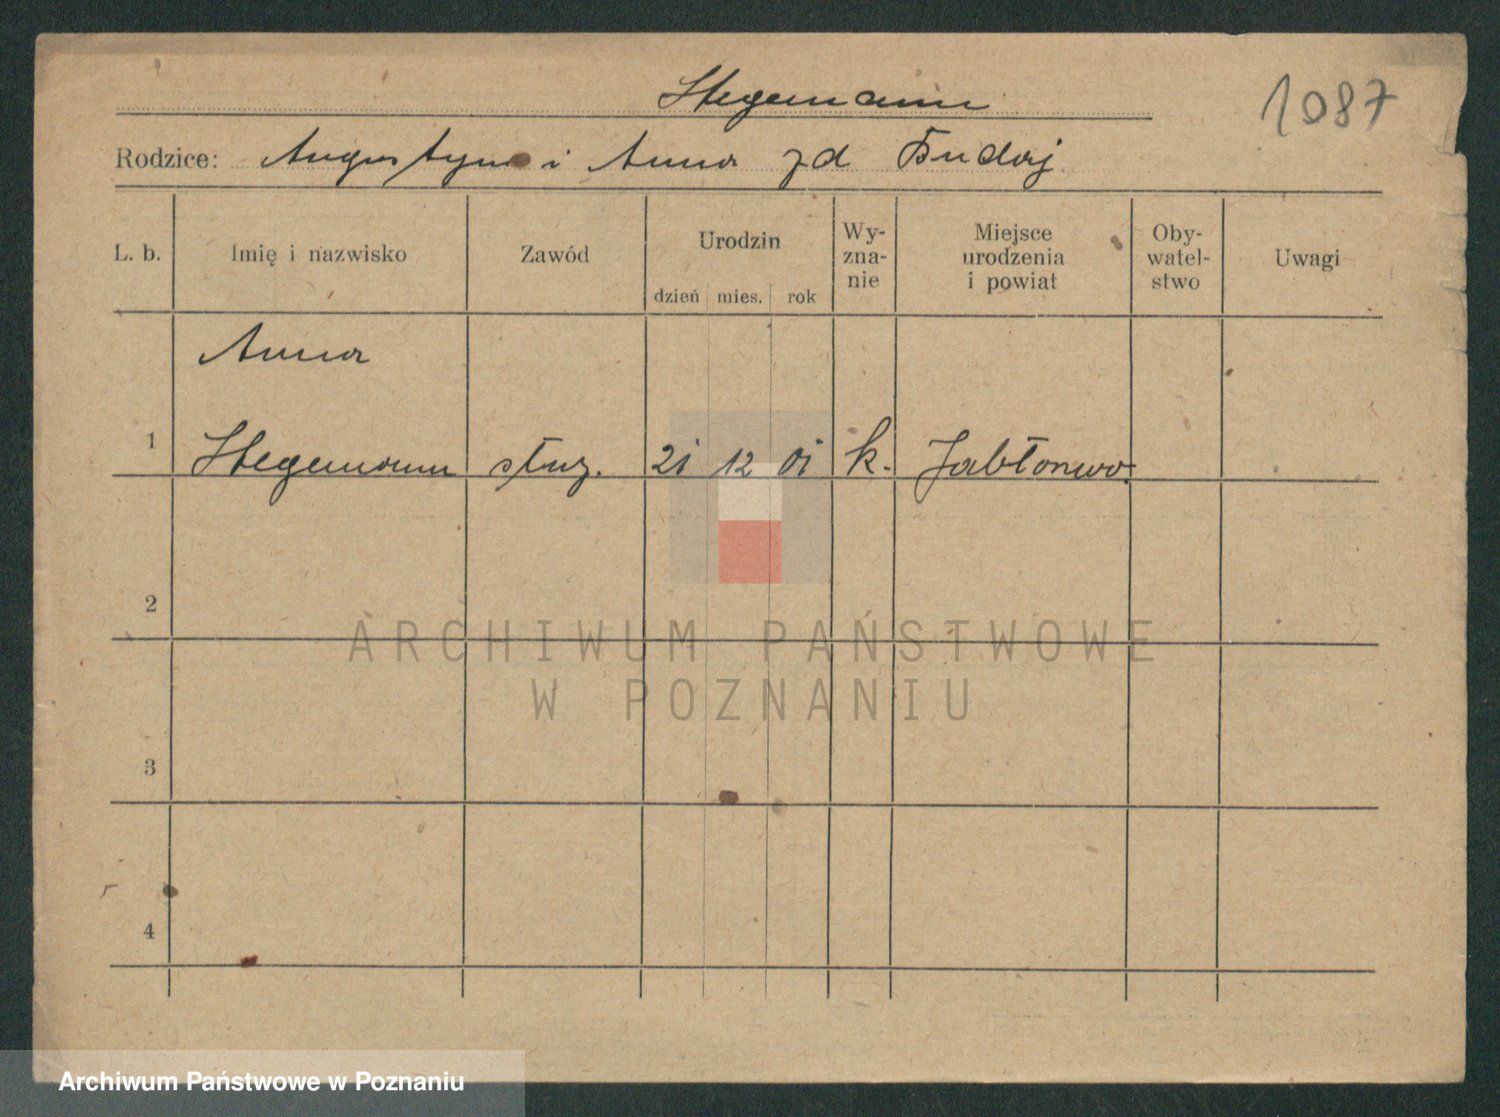 Stegemann
1087
Rodzice: Augustyn i Anna zd Budaj
L. b.
Imię i nazwisko
Zawód
Urodzin
dzień mies. rok
Wy-
zna-
nie
Miejsce
urodzenia
i powiat
Oby-
watel-
stwo
Uwagi
Anna
1 Stegemann służ. 21 12 01 k. Jabłonowo.
2
ARCHIWUM PAŃSTWOWE
W POZNANIU
3
4
Archiwum Państwowe w Poznaniu